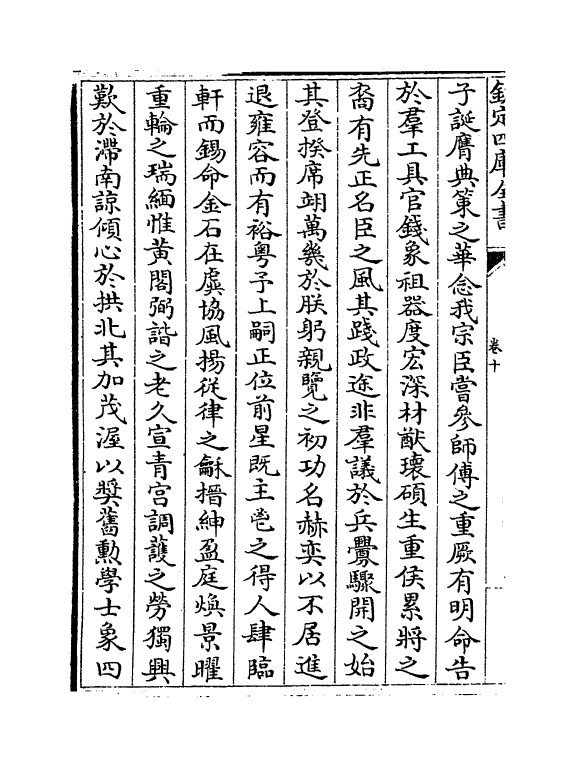 欽定四庫全書
卷十
子誕膺典策之華念我宗臣嘗參師傅之重厥有明命告
於羣工具官錢象祖器度宏深材猷瓌碩生重侯累將之
裔有先正名臣之風其踐政途非羣議於兵釁驟開之始
其登揆席翊萬幾於朕躬親覽之初功名赫奕以不居進
退雍容而有裕粤予上嗣正位前星既主鬯之得人肆臨
軒而錫命金石在虡協風揚從律之龢搢紳盈庭煥景曜
重輪之瑞緬惟黃閣弼諧之老久宣青宮調護之勞獨興
歎於滯南諒傾心於拱北其加茂渥以奬舊勲學士象四